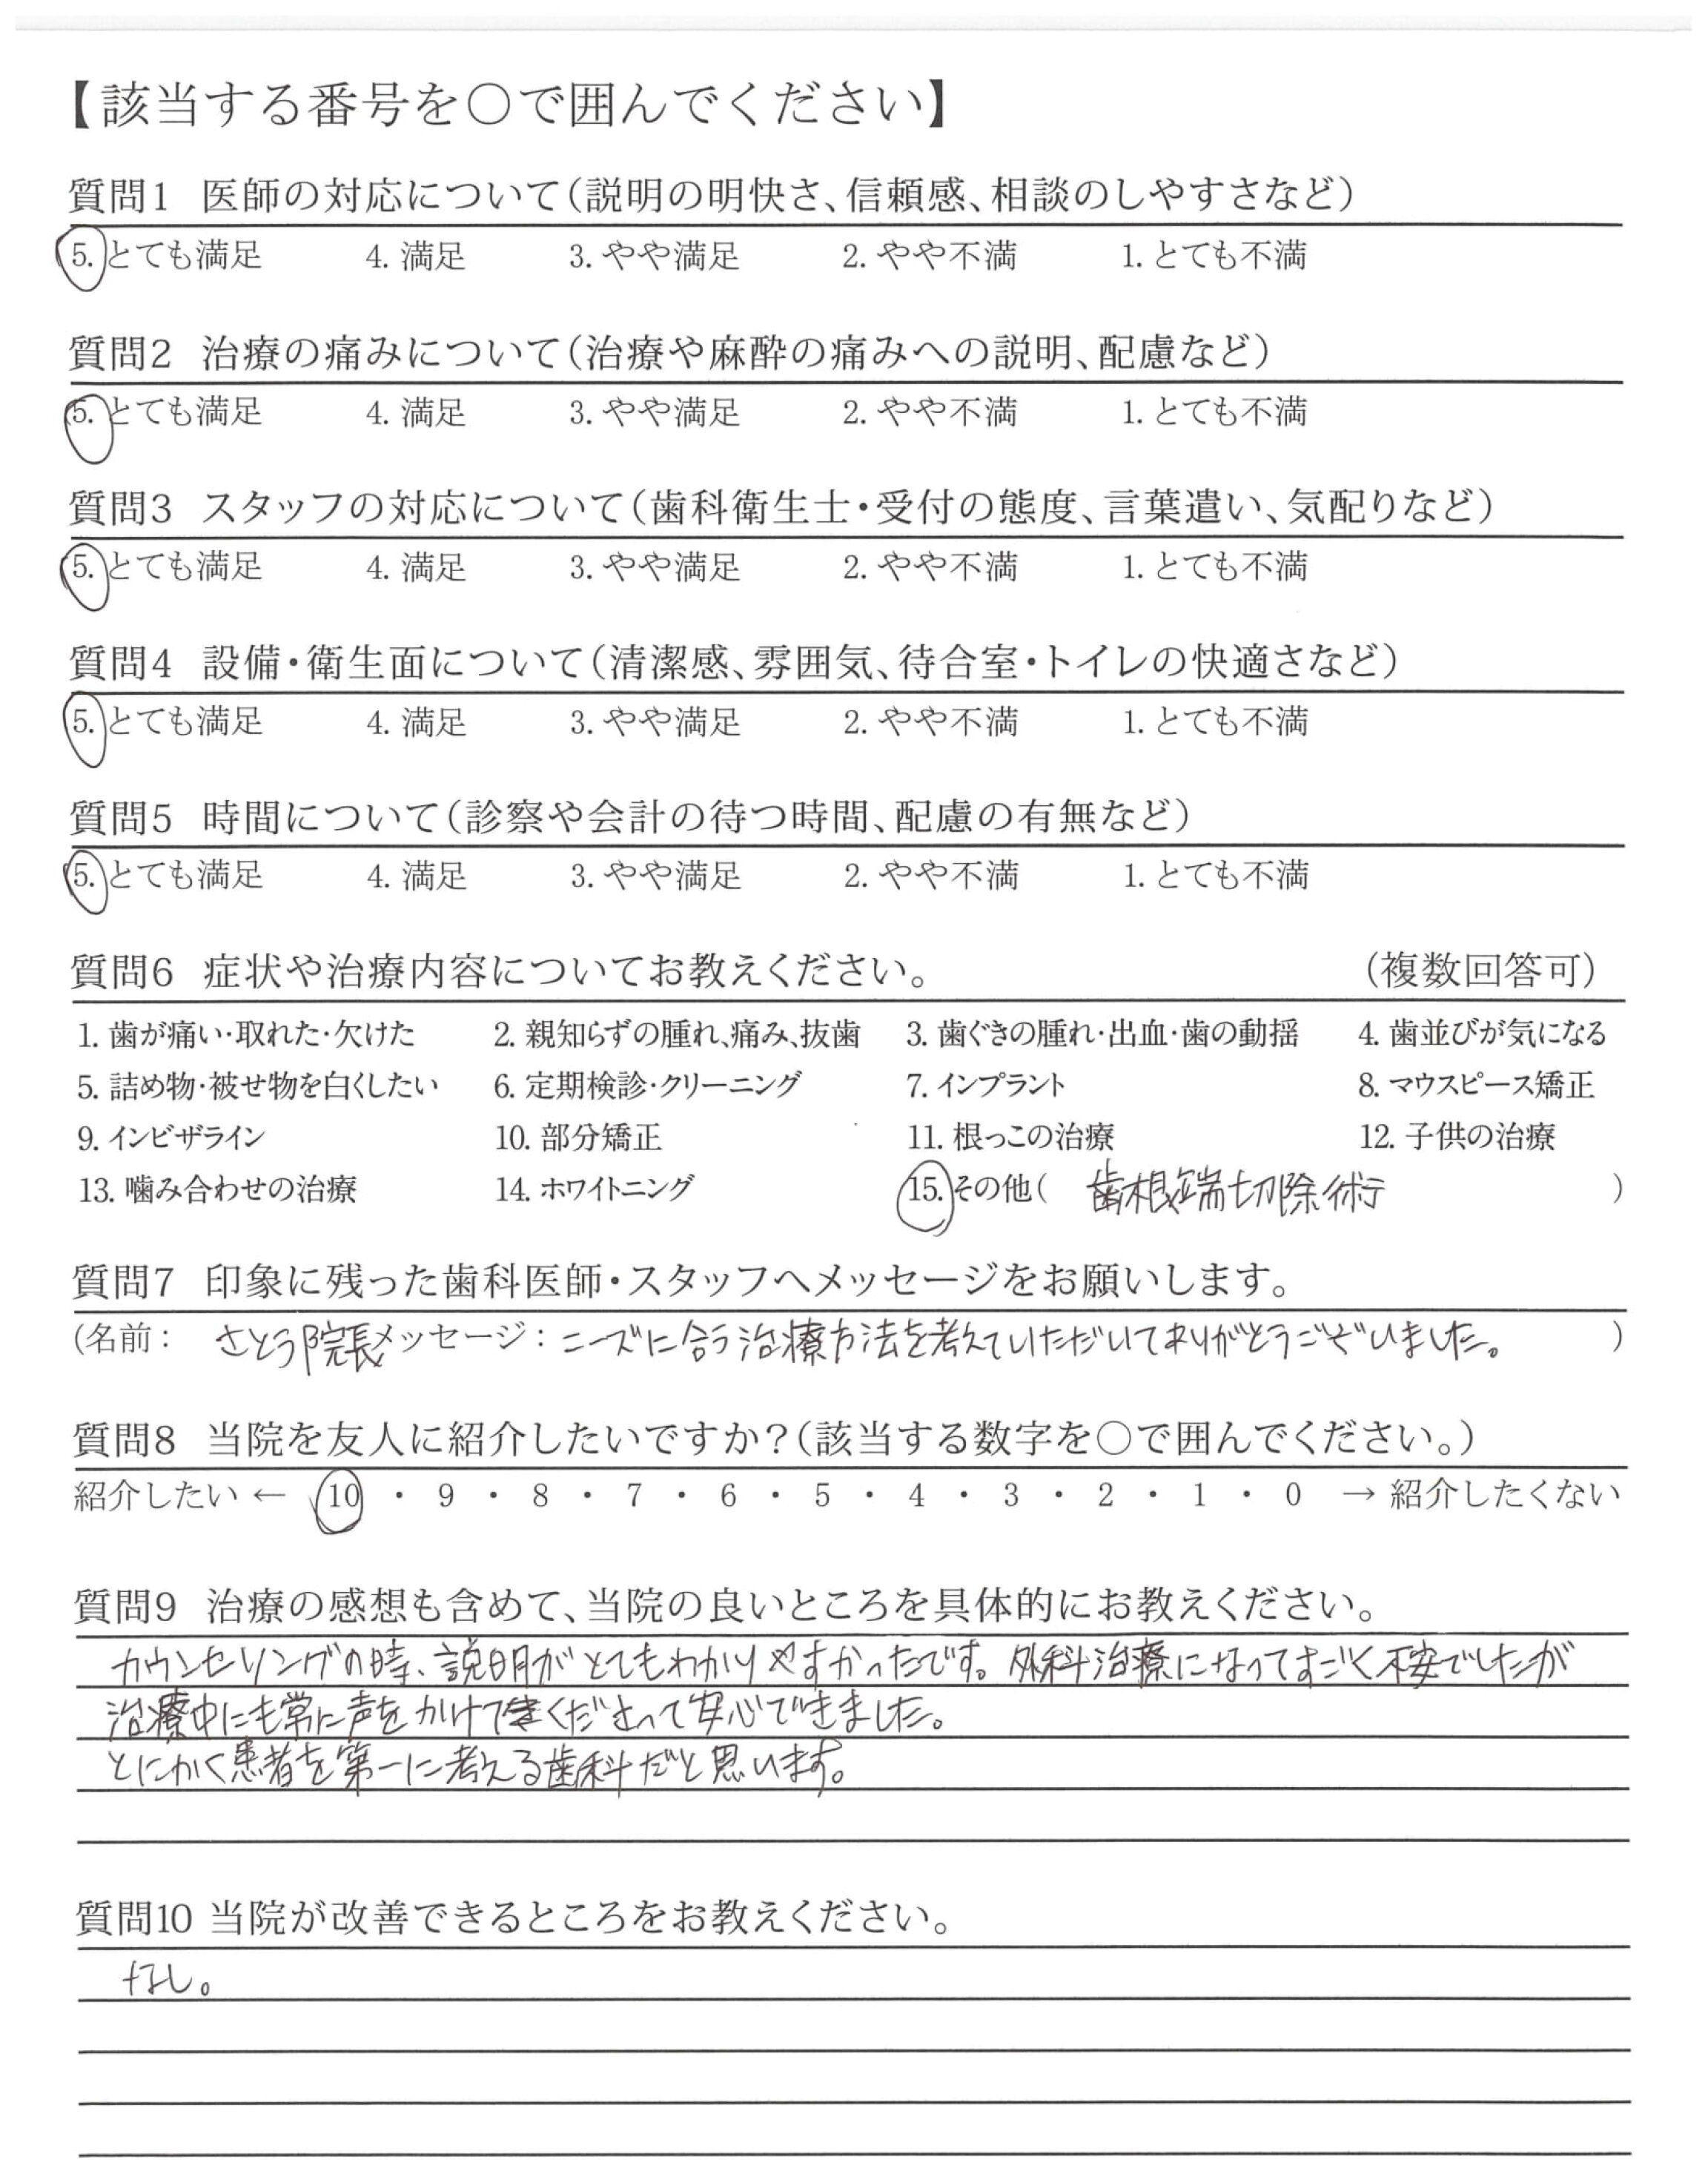 【該当する番号を○で囲んでください】
質問1 医師の対応について(説明の明快さ、信頼感、相談のしやすさなど)
5. とても満足 4. 満足 3. やや満足 2. やや不満 1. とても不満
質問2 治療の痛みについて(治療や麻酔の痛みへの説明、配慮など)
5. とても満足 4. 満足 3. やや満足 2. やや不満 1. とても不満
質問3 スタッフの対応について(歯科衛生士・受付の態度、言葉遣い、気配りなど)
5. とても満足 4. 満足 3. やや満足 2. やや不満 1. とても不満
質問4 設備・衛生面について(清潔感、雰囲気、待合室・トイレの快適さなど)
5. とても満足 4. 満足 3. やや満足 2. やや不満 1. とても不満
質問5 時間について(診察や会計の待つ時間、配慮の有無など)
5. とても満足 4. 満足 3. やや満足 2. やや不満 1. とても不満
質問6 症状や治療内容についてお教えください。 (複数回答可)
1. 歯が痛い・取れた・欠けた 2. 親知らずの腫れ、痛み、抜歯 3. 歯ぐきの腫れ・出血・歯の動揺 4. 歯並びが気になる
5. 詰め物・被せ物を白くしたい 6. 定期検診・クリーニング 7. インプラント 8. マウスピース矯正
9. インビザライン 10. 部分矯正 11. 根っこの治療 12. 子供の治療
13. 噛み合わせの治療 14. ホワイトニング 15. その他( 歯根端切除術 )
質問7 印象に残った歯科医師・スタッフへメッセージをお願いします。
(名前: さとう院長 メッセージ: ニーズに合う治療方法を考えていただいてありがとうございました。 )
質問8 当院を友人に紹介したいですか?(該当する数字を○で囲んでください。)
紹介したい ← 10 ・ 9 ・ 8 ・ 7 ・ 6 ・ 5 ・ 4 ・ 3 ・ 2 ・ 1 ・ 0 → 紹介したくない
質問9 治療の感想も含めて、当院の良いところを具体的にお教えください。
カウンセリングの時、説明がとてもわかりやすかったです。外科治療になってすごく不安でしたが
治療中にも常に声をかけてくださって安心できました。
とにかく患者を第一に考える歯科だと思います。
質問10 当院が改善できるところをお教えください。
なし。